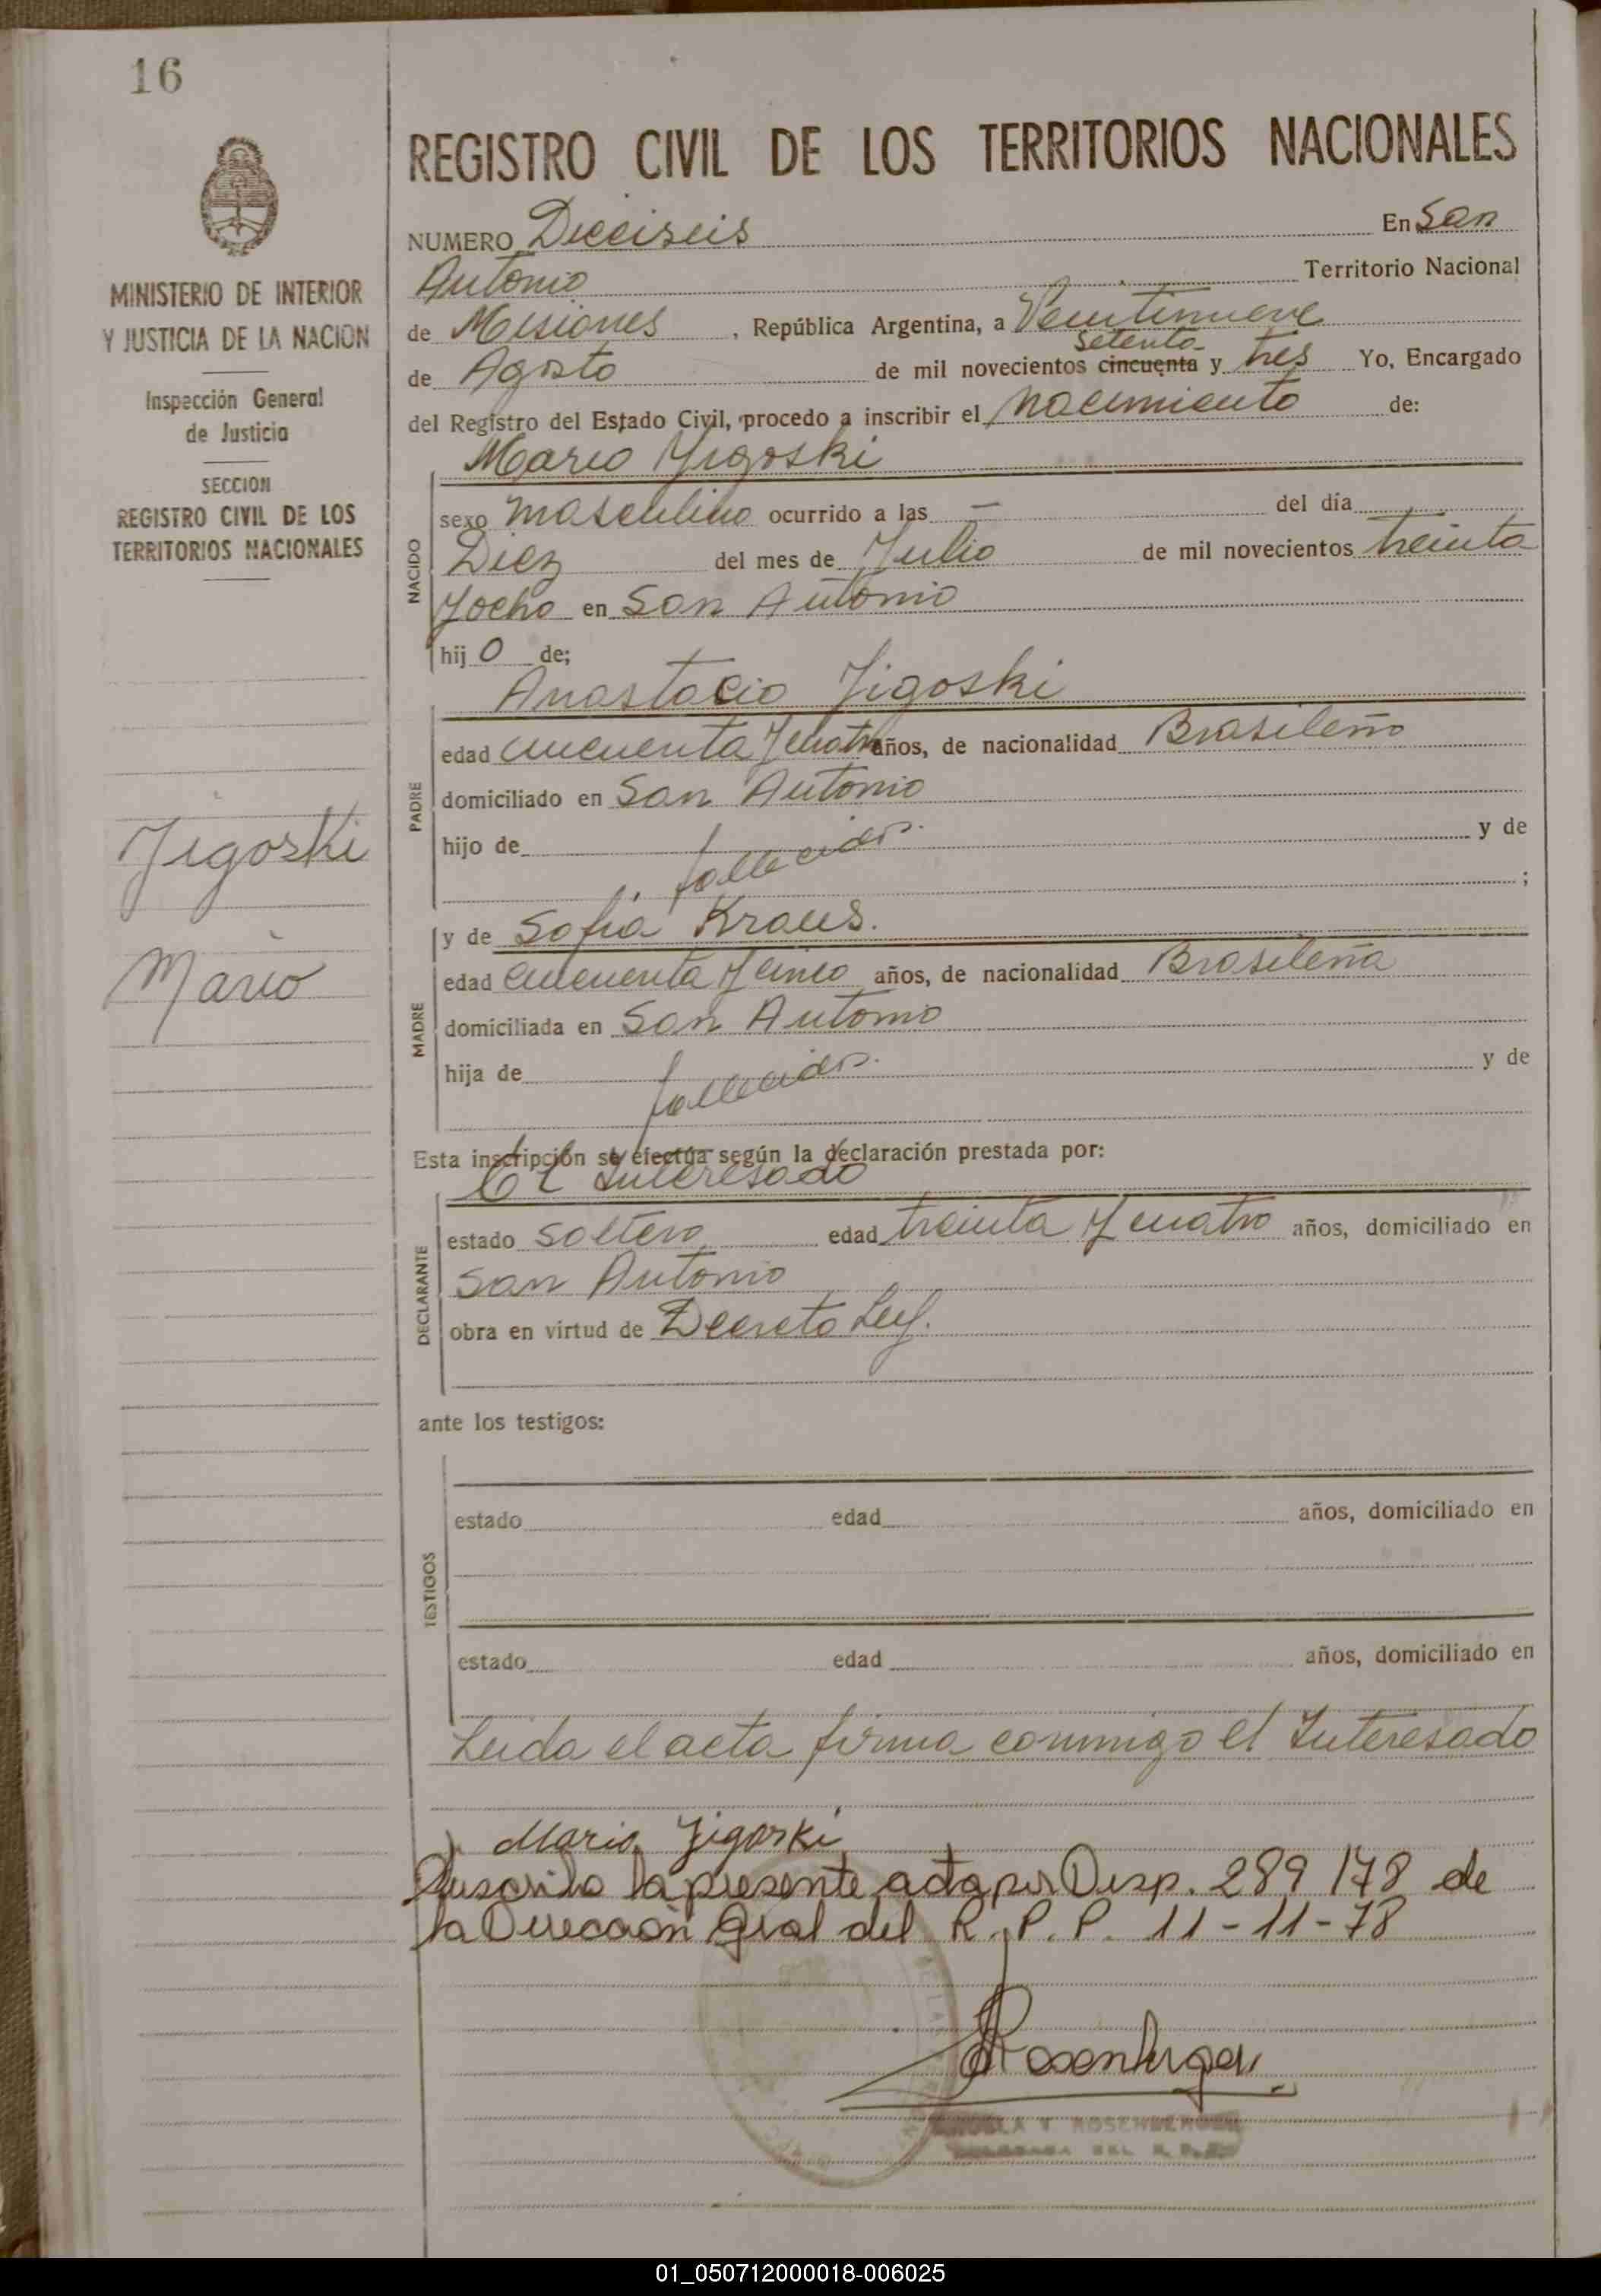 16
MINISTERIO DE INTERIOR
Y JUSTICIA DE LA NACION
Inspección General
de Justicia
SECCION
REGISTRO CIVIL DE LOS
TERRITORIOS NACIONALES
Jigoski
Mario
REGISTRO CIVIL DE LOS TERRITORIOS NACIONALES
NUMERO Dieciseis En San
Antonio Territorio Nacional
de Misiones, República Argentina, a Veintinueve
setenta
de Agosto de mil novecientos cincuenta y tres Yo, Encargado
del Registro del Estado Civil, procedo a inscribir el nacimiento de:
Mario Jigoski
NACIDO
sexo masculino ocurrido a las — del día
Diez del mes de Julio de mil novecientos treinta
y ocho en San Antonio
hij o de;
Anastacio Jigoski
PADRE
edad cincuenta y cuatro años, de nacionalidad Brasileño
domiciliado en San Antonio
hijo de fallecidos. y de
;
y de Sofia Kraus.
MADRE
edad cincuenta y cinco años, de nacionalidad Brasileña
domiciliada en San Antonio
hija de fallecidos. y de
Esta inscripción se efectúa según la declaración prestada por:
El Interesado
DECLARANTE
estado soltero edad treinta y cuatro años, domiciliado en
San Antonio
obra en virtud de Decreto Ley.
ante los testigos:
TESTIGOS
estado edad años, domiciliado en
estado edad años, domiciliado en
Leida el acta firma conmigo el Interesado
Mario Jigoski
Suscribo la presente acta por Disp. 289/78 de
la Dirección Gral del R.P.P. 11-11-78
ROSENBERGER
01_050712000018-006025